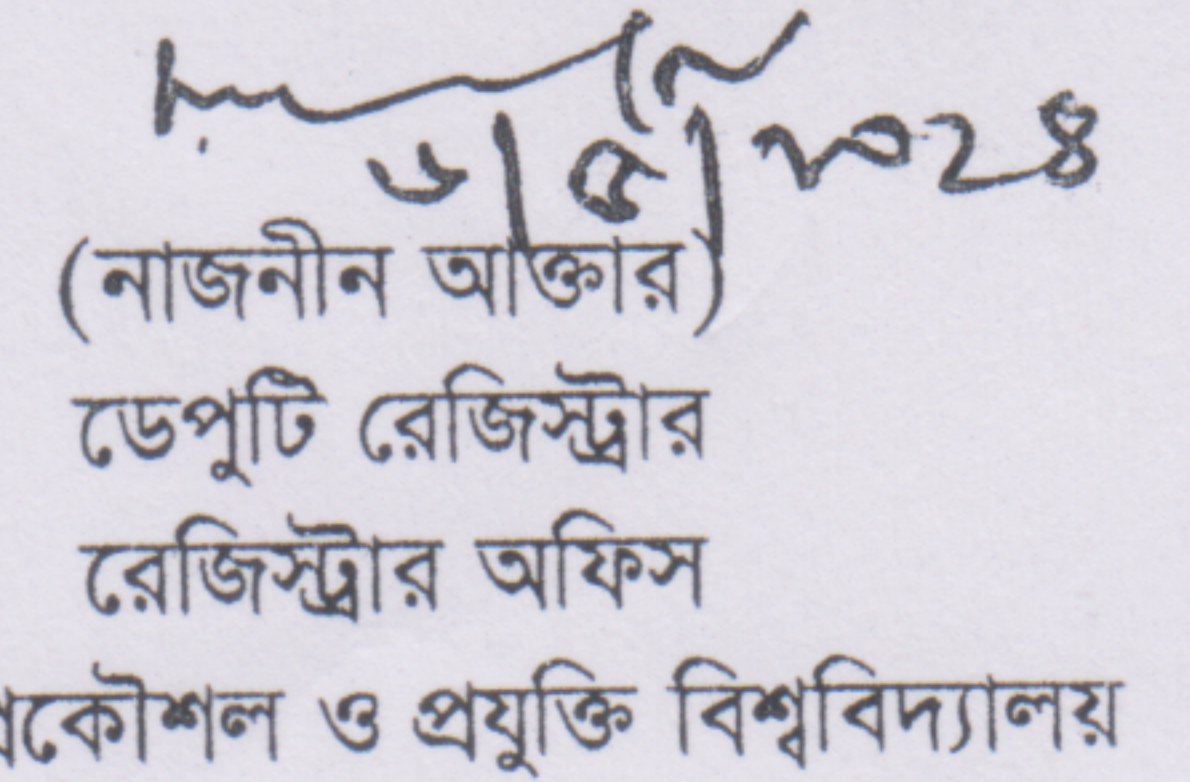 (নাজনীন আক্তার)
ডেপুটি রেজিস্ট্রার
রেজিস্ট্রার অফিস
প্রকৌশল ও প্রযুক্তি বিশ্ববিদ্যালয়